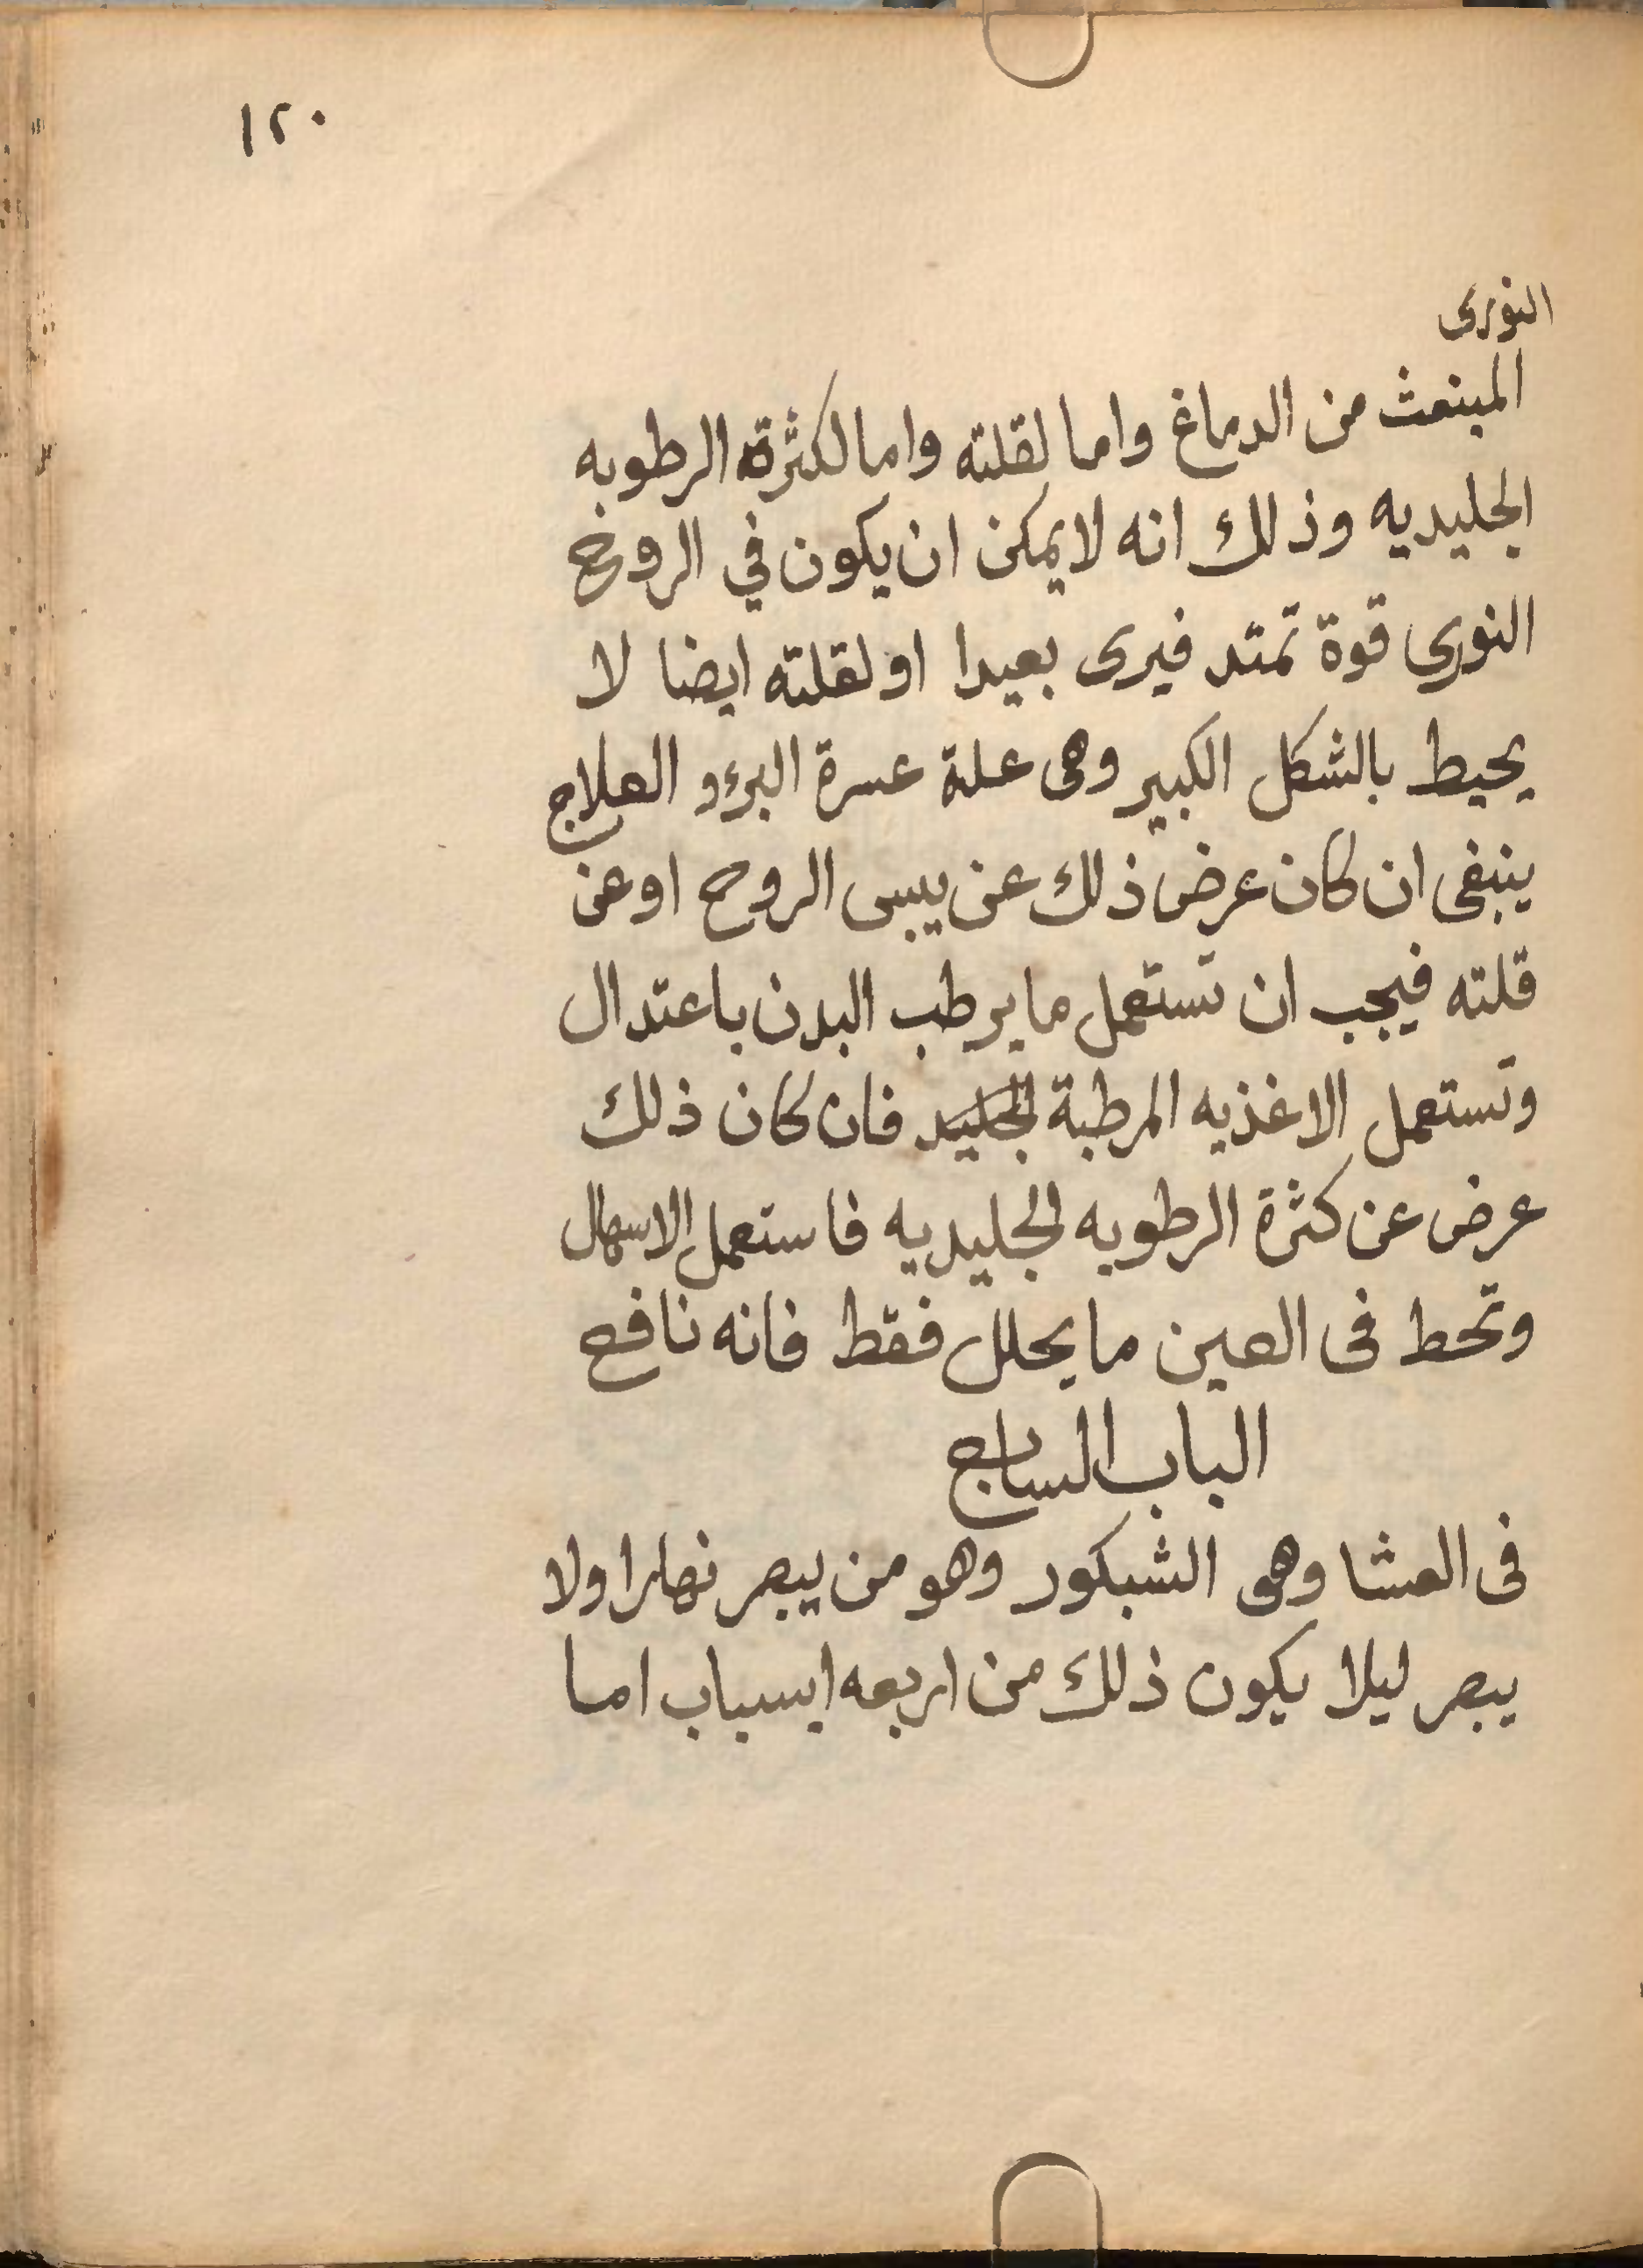 ١٢٠
النورى
المنبعث من الدماغ واما لقلته واما لكثرة الرطوبه
الجليديه وذلك انه لا يمكن ان يكون في الروح
النوري قوة تمتد فيرى بعيدا او لقلته ايضا لا
يحيط بالشكل الكبير وهى علة عسرة البرءو العلاج
ينبغى ان كان عرض ذلك عن يبس الروح او عن
قلته فيجب ان تستعمل ما يرطب البدن باعتدال
وتستعمل الاغذيه المرطبة فان كان ذلك
عرض عن كثرة الرطوبه الجليديه فاستعمل الاسهال
وتحط فى العين ما يحلل فقط فانه نافع
الباب السابع
فى العشا وهى الشبكور وهو من يبصر نهارا ولا
يبصر ليلا يكون ذلك من اربعه اسباب اما